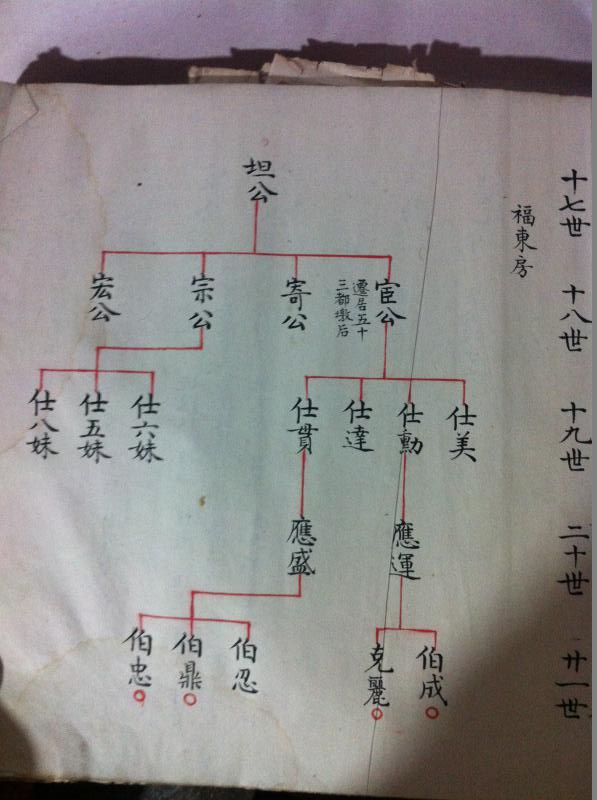 十七世
十八世
十九世
二十世
廿一世
福東房
坦公
宦公
遷居五十
三都墩后
寄公
宗公
宏公
仕美
仕勳
仕達
仕貫
仕六妹
仕五妹
仕八妹
應運
應盛
伯成
克麗
伯忍
伯鼎
伯忠